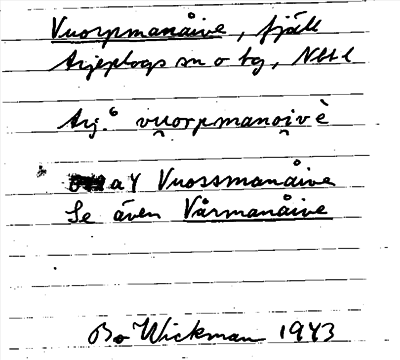 Vuorpmanåive, fjäll
Arjeplogs sn o tg, Nbtl
Arj.⁶ vu̯orpmanoi̯vè
a Y Vuossmanåive
Se även Vårmanåive
Bo Wickman 1943